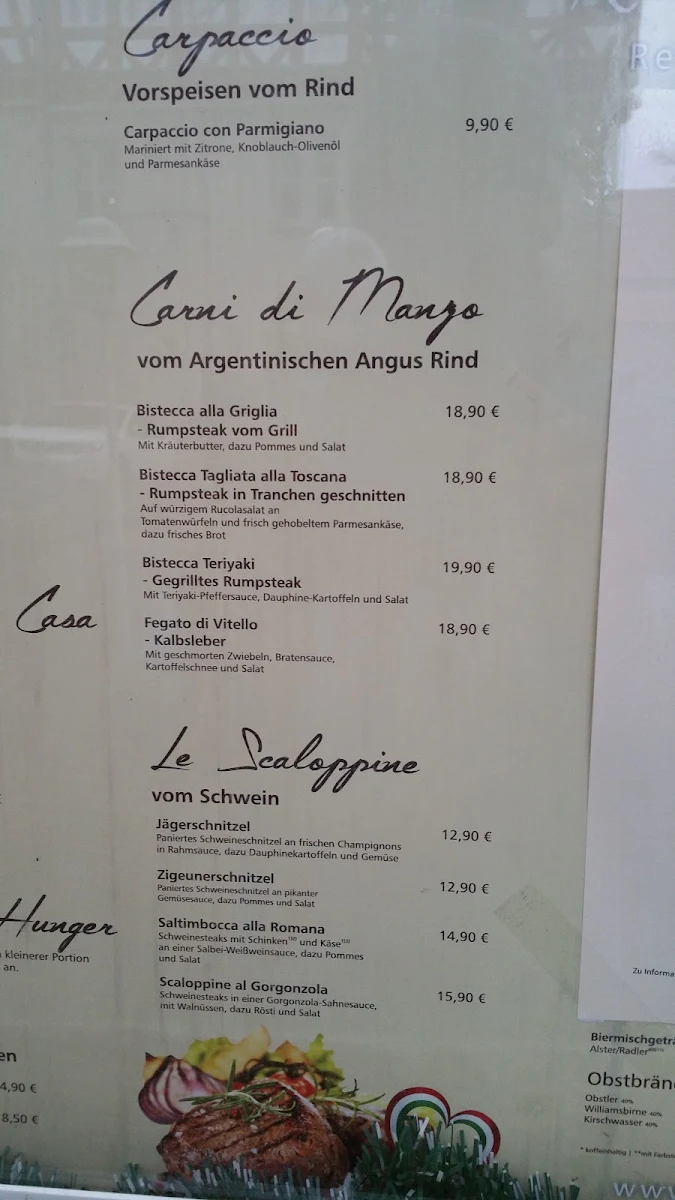 Carpaccio
Vorspeisen vom Rind
Carpaccio con Parmigiano 9,90 €
Mariniert mit Zitrone, Knoblauch-Olivenöl
und Parmesankäse
Carni di Manzo
vom Argentinischen Angus Rind
Bistecca alla Griglia 18,90 €
- Rumpsteak vom Grill
Mit Kräuterbutter, dazu Pommes und Salat
Bistecca Tagliata alla Toscana 18,90 €
- Rumpsteak in Tranchen geschnitten
Auf würzigem Rucolasalat an
Tomatenwürfeln und frisch gehobeltem Parmesankäse,
dazu frisches Brot
Bistecca Teriyaki 19,90 €
- Gegrilltes Rumpsteak
Mit Teriyaki-Pfeffersauce, Dauphine-Kartoffeln und Salat
Fegato di Vitello 18,90 €
- Kalbsleber
Mit geschmorten Zwiebeln, Bratensauce,
Kartoffelschnee und Salat
Le Scaloppine
vom Schwein
Jägerschnitzel 12,90 €
Paniertes Schweineschnitzel an frischen Champignons
in Rahmsauce, dazu Dauphinekartoffeln und Gemüse
Zigeunerschnitzel 12,90 €
Paniertes Schweineschnitzel an pikanter
Gemüsesauce, dazu Pommes und Salat
Saltimbocca alla Romana 14,90 €
Schweinesteaks mit Schinken und Käse
an einer Salbei-Weißweinsauce, dazu Pommes
und Salat
Scaloppine al Gorgonzola 15,90 €
Schweinesteaks in einer Gorgonzola-Sahnesauce,
mit Walnüssen, dazu Rösti und Salat
Casa
Hunger
kleinerer Portion
an.
en
4,90 €
8,50 €
Re
Zu Informa
Biermischgeträ
Alster/Radler
Obstbrän
Obstler 40%
Williamsbirne 40%
Kirschwasser 40%
* koffeinhaltig | **mit Farbst
www